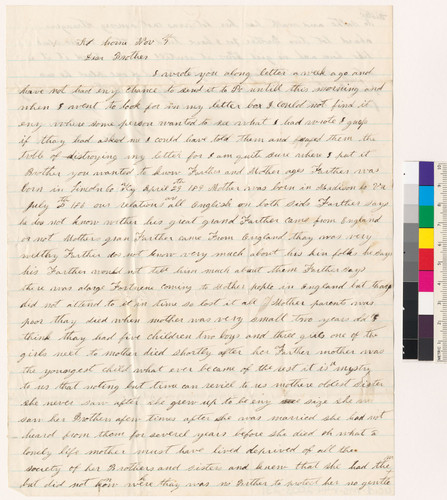 Nov 9
Dear Brother
I wrote you along letter a week ago and
have not had eny chance to send it to Po untill this morning and
when I went to look for in my letter box I could not find it
eny where some person wanted to see what I had wrote I gess
if thay had asked me I could have told them and them the
troble of destroying my letter for I am quite sure where I put it
Brother you wanted to know Farther and Mother ages Farther was
born in Lincoln Co Ky April 23 Mother was born in Madison Co
July our relation all English on both side Farther says
he do not know wether his great grand Farther came from England
or not Mothers gran Farther came From England thay was very
welthy Farther does not know very much about his kin folks he says
his Farther would not tell him much about them Farther says
there was alarge Fortune coming to Mother people in England but thay
did not attend to it in time so lost it all Mother parents was
poor thay died when mother was very small two years old I
think thay had five children two boys and three girls one of the
girls next to mother died shortly after her Farther mother was
the youngest child what ever became of the rest it is a mystry
to us that noting but time can revel to us mothere oldest sister
she never saw after she grew up to be eny size she
saw her Brother afew times after she was married she had not
heard from them for several years before she died oh what a
lonely life mother must have lived deprived of all the
society of her Brothers and sisters and knew that she had them
but did not know where thay was no Farther to protect her no gentle